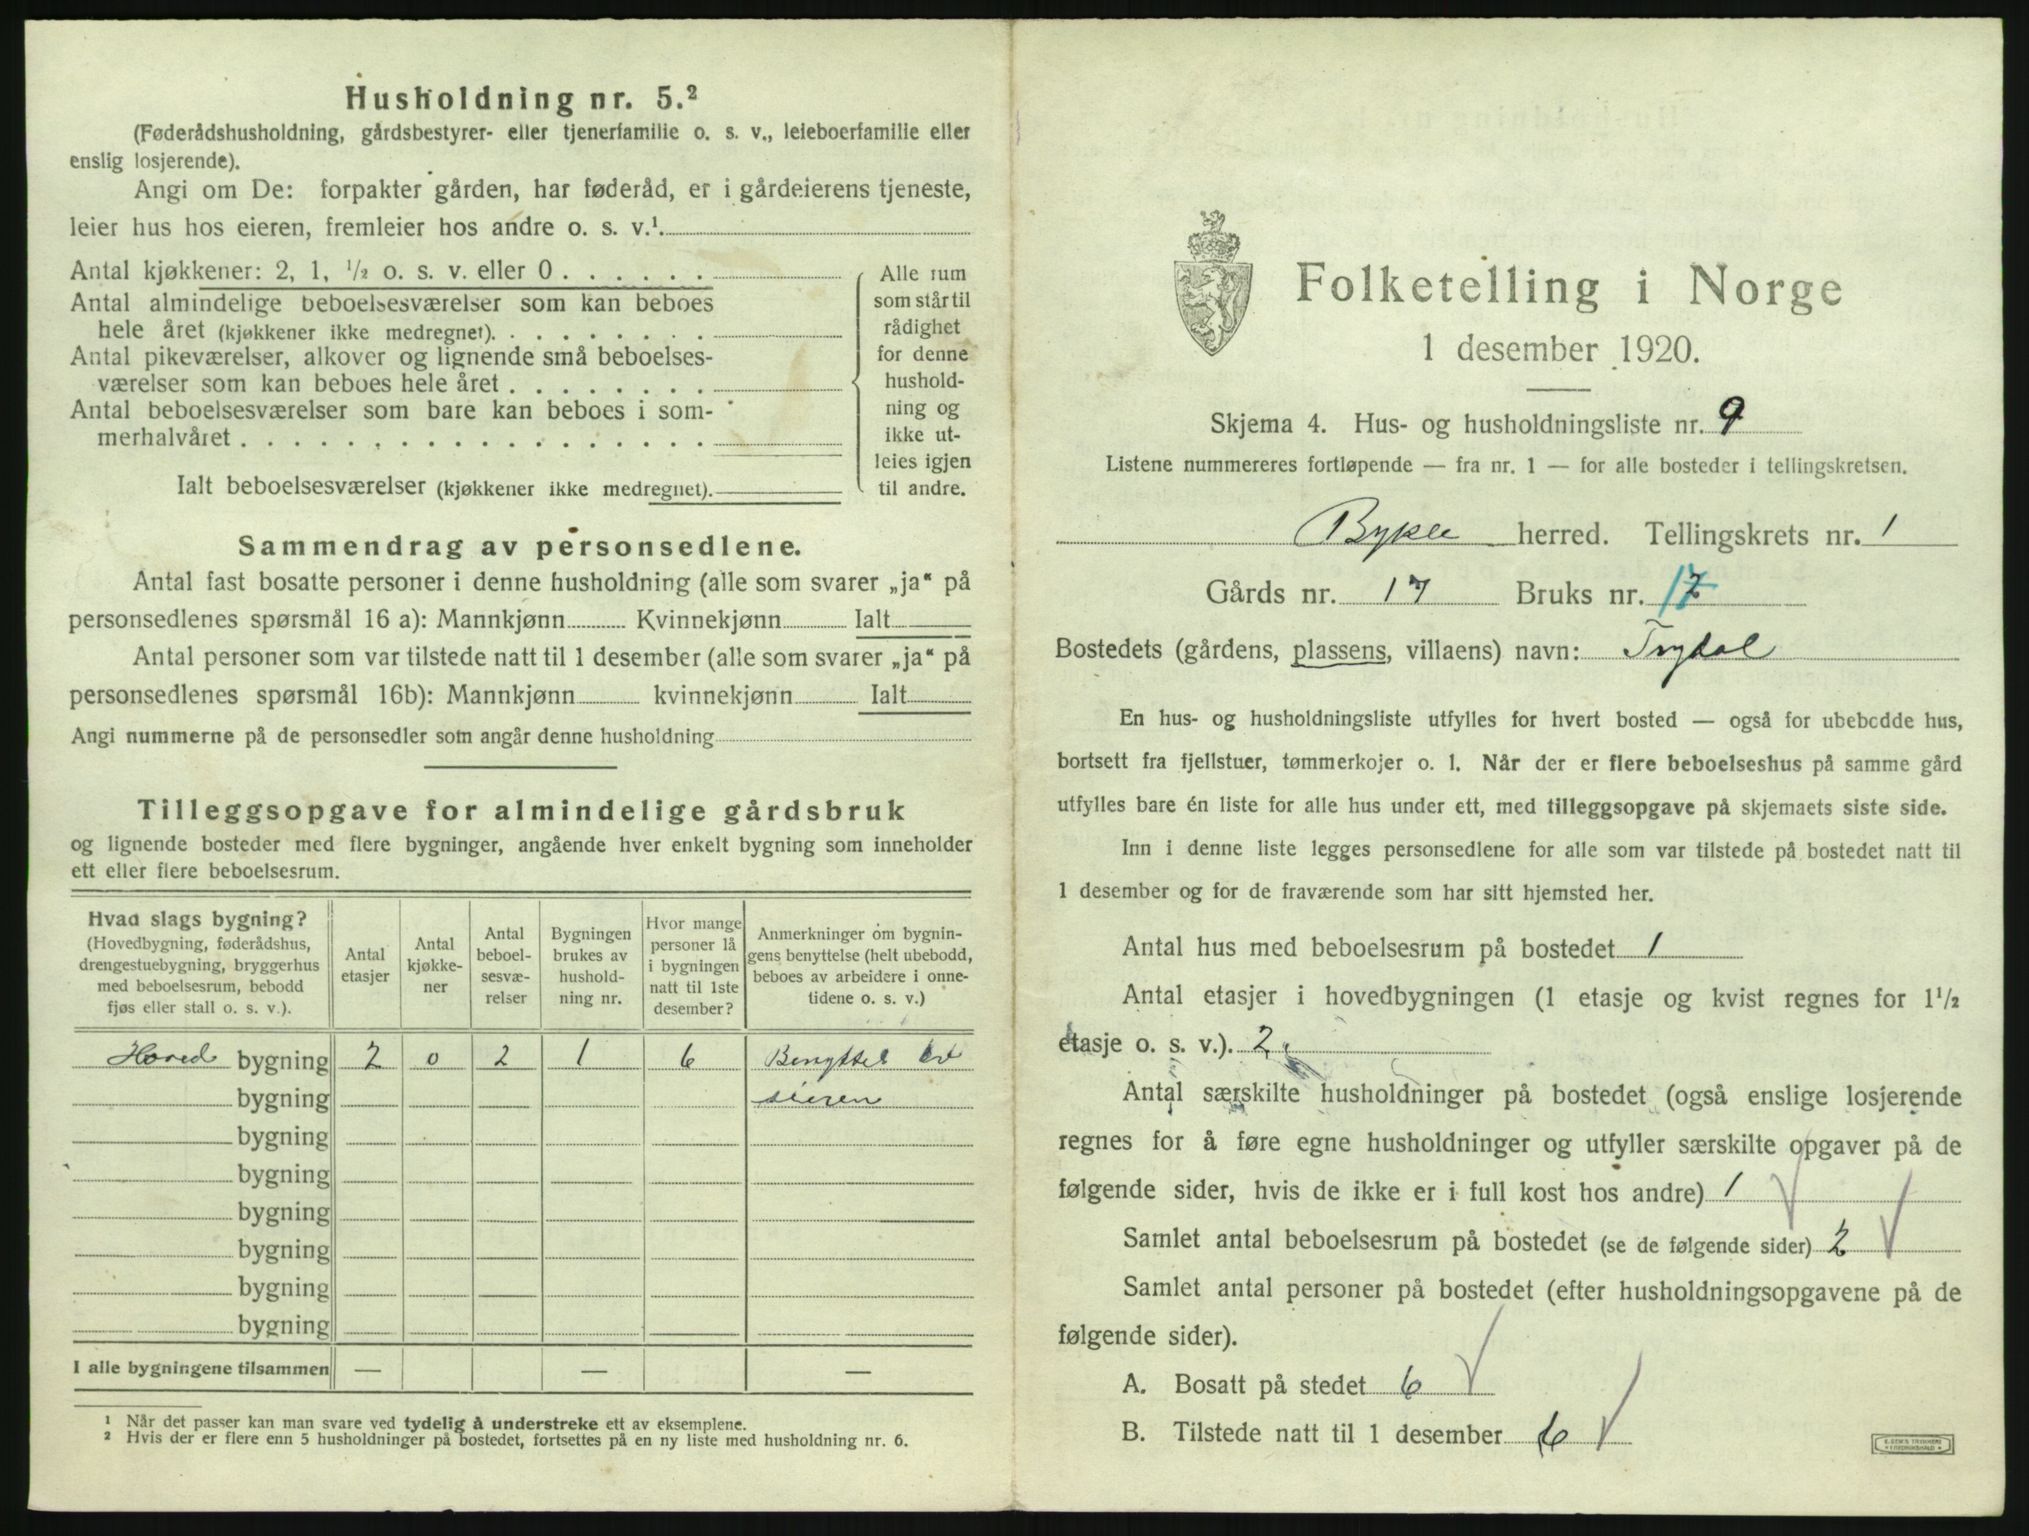 Husholdning nr. 5.²
(Føderådshusholdning, gårdsbestyrer- eller tjenerfamilie o. s. v., leieboerfamilie eller
enslig losjerende).
Angi om De: forpakter gården, har føderåd, er i gårdeierens tjeneste,
leier hus hos eieren, fremleier hos andre o. s. v.¹
Antal kjøkkener: 2, 1, ½ o. s. v. eller 0 . . . . . .
Antal almindelige beboelsesværelser som kan beboes
hele året (kjøkkener ikke medregnet). . . . . . . . .
Antal pikeværelser, alkover og lignende små beboelses-
værelser som kan beboes hele året . . . . . . . .
Antal beboelsesværelser som bare kan beboes i som-
merhalvåret . . . . . . . . . . . . . . . . . .
Ialt beboelsesværelser (kjøkkener ikke medregnet).
Alle rum
som står til
rådighet
for denne
hushold-
ning og
ikke ut-
leies igjen
til andre.
Sammendrag av personsedlene.
Antal fast bosatte personer i denne husholdning (alle som svarer „ja“ på
personsedlenes spørsmål 16 a): Mannkjønn Kvinnekjønn Ialt
Antal personer som var tilstede natt til 1 desember (alle som svarer „ja“ på
personsedlenes spørsmål 16b): Mannkjønn kvinnekjønn Ialt
Angi nummerne på de personsedler som angår denne husholdning
Tilleggsopgave for almindelige gårdsbruk
og lignende bosteder med flere bygninger, angående hver enkelt bygning som inneholder
ett eller flere beboelsesrum.
Hvad slags bygning?
(Hovedbygning, føderådshus,
drengestuebygning, bryggerhus
med beboelsesrum, bebodd
fjøs eller stall o. s. v.).
Antal
etasjer
Antal
kjøkke-
ner
Antal
beboel-
sesvæ-
relser
Bygningen
brukes av
hushold-
ning nr.
Hvor mange
personer lå
i bygningen
natt til 1ste
desember?
Anmerkninger om bygnin-
gens benyttelse (helt ubebodd,
beboes av arbeidere i onne-
tidene o. s. v.)
Hoved bygning 2 0 2 1 6 Benyttel
bygning eieren
bygning
bygning
bygning
bygning
bygning
bygning
I alle bygningene tilsammen — — —
¹ Når det passer kan man svare ved tydelig å understreke ett av eksemplene.
² Hvis der er flere enn 5 husholdninger på bostedet, fortsettes på en ny liste med husholdning nr. 6.
Folketelling i Norge
1 desember 1920.
Skjema 4. Hus- og husholdningsliste nr. 9
Listene nummereres fortløpende — fra nr. 1 — for alle bosteder i tellingskretsen.
Bykle herred. Tellingskrets nr. 1
Gårds nr. 17 Bruks nr. 17
Bostedets (gårdens, plassens, villaens) navn: Trydal
En hus- og husholdningsliste utfylles for hvert bosted — også for ubebodde hus,
bortsett fra fjellstuer, tømmerkojer o. l. Når der er flere beboelseshus på samme gård
utfylles bare én liste for alle hus under ett, med tilleggsopgave på skjemaets siste side.
Inn i denne liste legges personsedlene for alle som var tilstede på bostedet natt til
1 desember og for de fraværende som har sitt hjemsted her.
Antal hus med beboelsesrum på bostedet 1
Antal etasjer i hovedbygningen (1 etasje og kvist regnes for 1½
etasje o. s. v.). 2
Antal særskilte husholdninger på bostedet (også enslige losjerende
regnes for å føre egne husholdninger og utfyller særskilte opgaver på de
følgende sider, hvis de ikke er i full kost hos andre) 1
Samlet antal beboelsesrum på bostedet (se de følgende sider) 2
Samlet antal personer på bostedet (efter husholdningsopgavene på de
følgende sider).
A. Bosatt på stedet 6
B. Tilstede natt til 1 desember 6